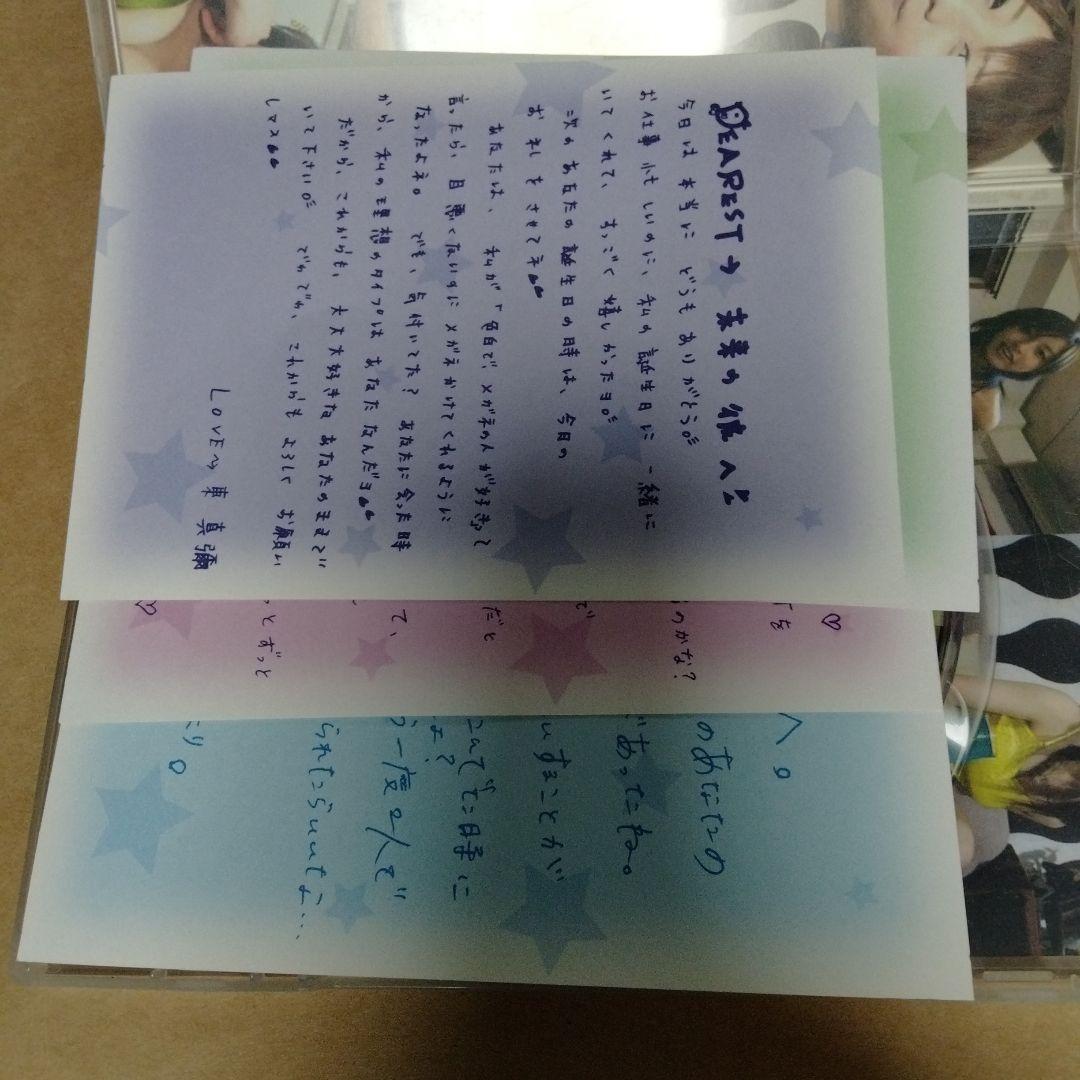 DEAREST→ 未来の彼へ
今日は本当に どうも ありがとう。
お仕事 忙しいのに、私の誕生日に 一緒に
いてくれて、すっごく 嬉しかったヨ。
次の あなたの 誕生日の時は、今日の
お礼を させてネ
あなたは、私が「色白で、メガネの人が好き」って
言ったら、目悪くないのに メガネかけてくれるように
なったよネ。 でも、気付いてた? あなたに会った時
から、私の理想のタイプは あなたなんだヨ
だから、これからも、大大大好きな あなたのままで
いて下さい。 でわでわ、これからも よろしく お願い
しマス
LOVE〜 東 真彌
♡
を
のかな?
で
だと
て、
っとずっと
♡
へ。
のあなたの
であったね。
いますことが
こんでた時に
よ?
う一度2人で
られたらいいな…
り。